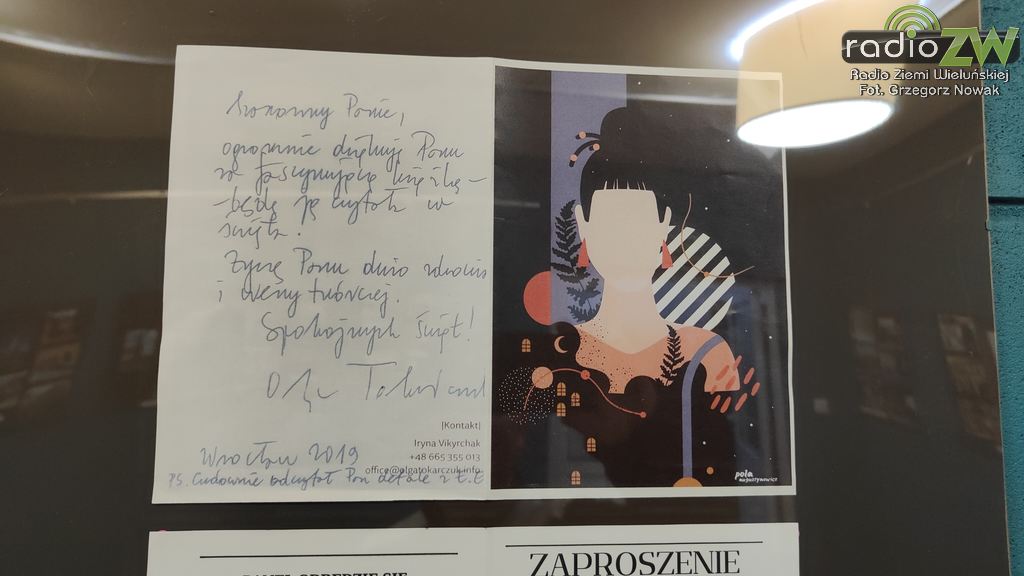 radioZW
Radio Ziemi Wieluńskiej
Fot. Grzegorz Nowak
Szanowny Panie,
ogromnie dziękuję Panu
za fascynującą książkę –
– będę ją czytać w
święta.
Życzę Panu dużo zdrowia
i weny twórczej.
Spokojnych Świąt!
Olga Tokarczuk
|Kontakt|
Iryna Vikyrchak
+48 665 355 013
office@olgatokarczuk.info
Wrocław 2019
PS. Cudownie odczytał Pan detale z
pola
augustynowicz
ZAPROSZENIE